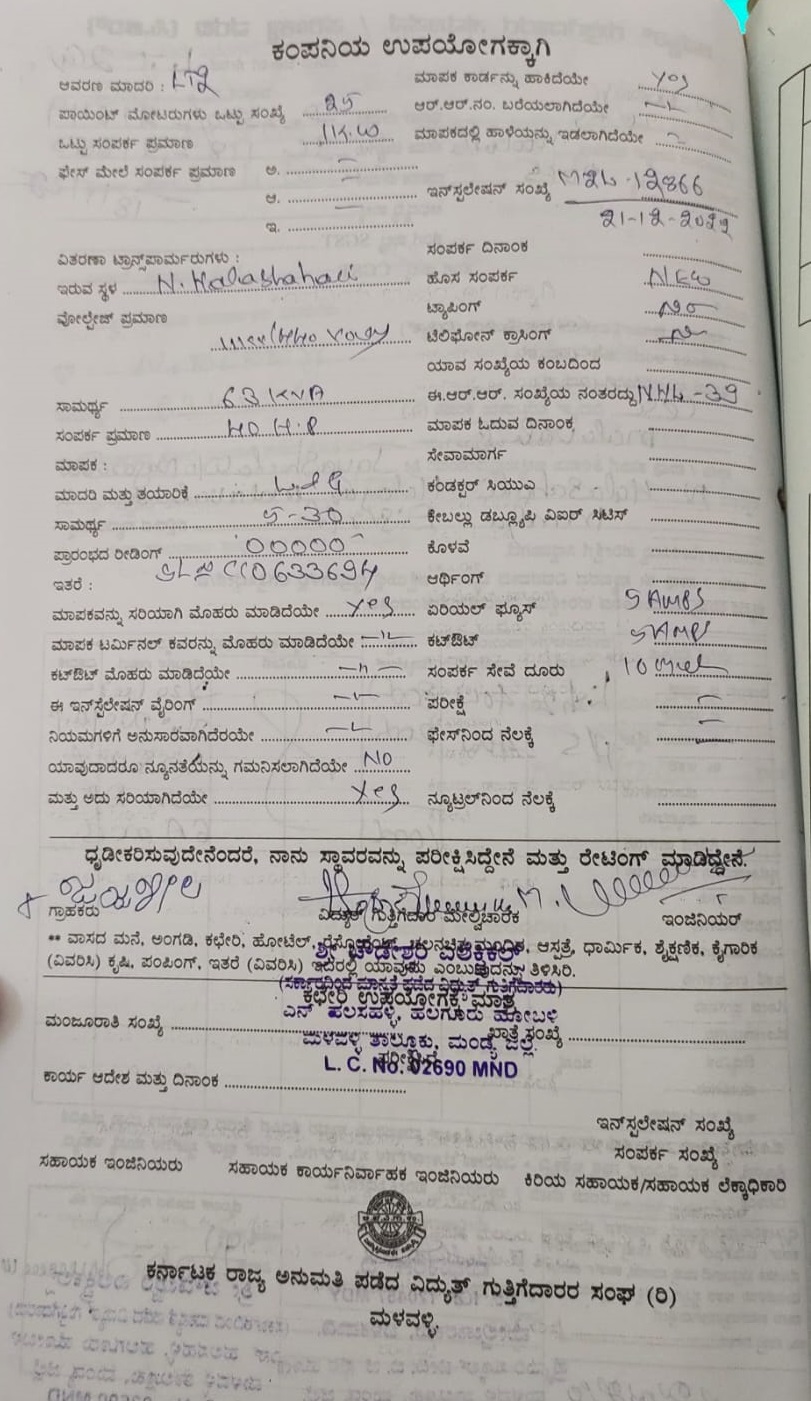 ಕಂಪನಿಯ ಉಪಯೋಗಕ್ಕಾಗಿ
ಆವರಣ ಮಾದರಿ : LT2
ಮಾಪಕ ಕಾರ್ಡನ್ನು ಹಾಕಿದೆಯೇ Yes
ಪಾಯಿಂಟ್ ಮೋಟರುಗಳು ಒಟ್ಟು ಸಂಖ್ಯೆ 25
ಆರ್.ಆರ್.ನಂ. ಬರೆಯಲಾಗಿದೆಯೇ
ಒಟ್ಟು ಸಂಪರ್ಕ ಪ್ರಮಾಣ 1K.W
ಮಾಪಕದಲ್ಲಿ ಹಾಳೆಯನ್ನು ಇಡಲಾಗಿದೆಯೇ
ಫೇಸ್ ಮೇಲೆ ಸಂಪರ್ಕ ಪ್ರಮಾಣ ಅ.
ಆ.
ಇನ್‌ಸ್ಟಲೇಷನ್ ಸಂಖ್ಯೆ M2L-12866
21-12-2022
ಇ.
ವಿತರಣಾ ಟ್ರಾನ್ಸ್‌ಪಾರ್ಮರುಗಳು :
ಸಂಪರ್ಕ ದಿನಾಂಕ
ಇರುವ ಸ್ಥಳ N.
ಹೊಸ ಸಂಪರ್ಕ NEW
ವೋಲ್ಟೇಜ್ ಪ್ರಮಾಣ
ಟ್ಯಾಪಿಂಗ್ No
ಟೆಲಿಫೋನ್ ಕ್ರಾಸಿಂಗ್
ಯಾವ ಸಂಖ್ಯೆಯ ಕಂಬದಿಂದ
ಸಾಮರ್ಥ್ಯ 63 KVA
ಈ.ಆರ್.ಆರ್. ಸಂಖ್ಯೆಯ ನಂತರದ್ದು NHL-39
ಸಂಪರ್ಕ ಪ್ರಮಾಣ 40 H.P
ಮಾಪಕ ಓದುವ ದಿನಾಂಕ
ಮಾಪಕ :
ಸೇವಾಮಾರ್ಗ
ಮಾದರಿ ಮತ್ತು ತಯಾರಿಕೆ L&G
ಕಂಡಕ್ಟರ್ ಸಿಯುಎ
ಸಾಮರ್ಥ್ಯ 5-30
ಕೇಬಲ್ಲು ಡಬ್ಲ್ಯೂಪಿ ವಿಐರ್ ಸಿಟಿಸ್
ಪ್ರಾರಂಭದ ರೀಡಿಂಗ್ 00000
ಕೊಳವೆ
ಇತರೆ : SL No CC0633694
ಆರ್ಥಿಂಗ್
ಮಾಪಕವನ್ನು ಸರಿಯಾಗಿ ಮೊಹರು ಮಾಡಿದೆಯೇ Yes
ಏರಿಯಲ್ ಫ್ಯೂಸ್ 5 AMPS
ಮಾಪಕ ಟರ್ಮಿನಲ್ ಕವರನ್ನು ಮೊಹರು ಮಾಡಿದೆಯೇ
ಕಟ್‌ಔಟ್ 5 AMPS
ಕಟ್‌ಔಟ್ ಮೊಹರು ಮಾಡಿದೆಯೇ
ಸಂಪರ್ಕ ಸೇವೆ ದೂರು 10
ಈ ಇನ್‌ಸ್ಟೆಲೇಷನ್ ವೈರಿಂಗ್
ಪರೀಕ್ಷೆ
ನಿಯಮಗಳಿಗೆ ಅನುಸಾರವಾಗಿದೆರಯೇ
ಫೇಸ್‌ನಿಂದ ನೆಲಕ್ಕೆ
ಯಾವುದಾದರೂ ನ್ಯೂನತೆಯನ್ನು ಗಮನಿಸಲಾಗಿದೆಯೇ NO
ಮತ್ತು ಅದು ಸರಿಯಾಗಿದೆಯೇ Yes
ನ್ಯೂಟ್ರಲ್‌ನಿಂದ ನೆಲಕ್ಕೆ
ಧೃಡೀಕರಿಸುವುದೇನೆಂದರೆ, ನಾನು ಸ್ಥಾವರವನ್ನು ಪರೀಕ್ಷಿಸಿದ್ದೇನೆ ಮತ್ತು ರೇಟಿಂಗ್ ಮಾಡಿದ್ದೇನೆ.
ಗ್ರಾಹಕರು
ವಿದ್ಯುತ್ ಗುತ್ತಿಗೆದಾರ ಮೇಲ್ವಿಚಾರಕ
ಇಂಜಿನಿಯರ್
** ವಾಸದ ಮನೆ, ಅಂಗಡಿ, ಕಛೇರಿ, ಹೋಟೆಲ್, ಆಸ್ಪತ್ರೆ, ಧಾರ್ಮಿಕ, ಶೈಕ್ಷಣಿಕ, ಕೈಗಾರಿಕ
(ವಿವರಿಸಿ) ಕೃಷಿ, ಪಂಪಿಂಗ್, ಇತರೆ (ವಿವರಿಸಿ) ಇದರಲ್ಲಿ ಯಾವುದು ಎಂಬುದನ್ನು ತಿಳಿಸಿರಿ.
ಶ್ರೀ ಚೌಡೇಶ್ವರಿ ಎಲೆಕ್ಟ್ರಿಕಲ್
(ಸರ್ಕಾರದಿಂದ ಮಾನ್ಯತೆ ಪಡೆದ ವಿದ್ಯುತ್ ಗುತ್ತಿಗೆದಾರರು)
ಕಛೇರಿ ಉಪಯೋಗಕ್ಕೆ ಮಾತ್ರ
ಮಂಜೂರಾತಿ ಸಂಖ್ಯೆ
ಖಾತೆ ಸಂಖ್ಯೆ
ಮಳವಳ್ಳಿ ತಾಲ್ಲೂಕು, ಮಂಡ್ಯ ಜಿಲ್ಲೆ.
L. C. No. 02690 MND
ಕಾರ್ಯ ಆದೇಶ ಮತ್ತು ದಿನಾಂಕ
ಇನ್‌ಸ್ಟಲೇಷನ್ ಸಂಖ್ಯೆ
ಸಂಪರ್ಕ ಸಂಖ್ಯೆ
ಸಹಾಯಕ ಇಂಜಿನಿಯರು
ಸಹಾಯಕ ಕಾರ್ಯನಿರ್ವಾಹಕ ಇಂಜಿನಿಯರು
ಕಿರಿಯ ಸಹಾಯಕ/ಸಹಾಯಕ ಲೆಕ್ಕಾಧಿಕಾರಿ
ಕರ್ನಾಟಕ ರಾಜ್ಯ ಅನುಮತಿ ಪಡೆದ ವಿದ್ಯುತ್ ಗುತ್ತಿಗೆದಾರರ ಸಂಘ (ರಿ)
ಮಳವಳ್ಳಿ.